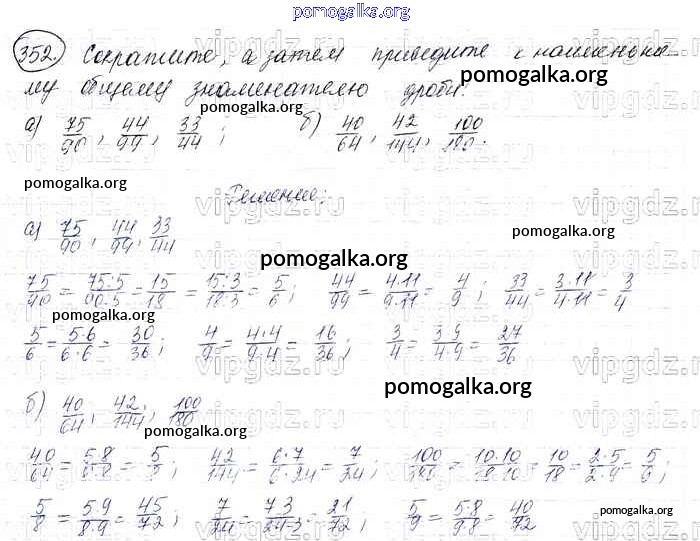 pomogalka.org
352. Сократите, а затем приведите к наименьше-
му общему знаменателю дроби:
pomogalka.org
pomogalka.org
а) 75/90, 44/99, 33/44; б) 40/64, 42/144, 100/180.
pomogalka.org
Решение:
vipgdz.ru
pomogalka.org
а) 75/90, 44/99, 33/44
pomogalka.org
75/90 = 75:5/90:5 = 15/18 = 15:3/18:3 = 5/6; 44/99 = 4·11/9·11 = 4/9; 33/44 = 3·11/4·11 = 3/4
5/6 = 5·6/6·6 = 30/36; 4/9 = 4·4/9·4 = 16/36; 3/4 = 3·9/4·9 = 27/36
pomogalka.org
б) 40/64, 42/144, 100/180
pomogalka.org
40/64 = 5·8/8·8 = 5/8; 42/144 = 6·7/6·24 = 7/24; 100/180 = 10·10/18·10 = 10/18 = 2·5/2·9 = 5/
5/8 = 5·9/8·9 = 45/72; 7/24 = 7·3/24·3 = 21/72; 5/9 = 5·8/9·8 = 40/72
pomogalka.org
pomogalka.org